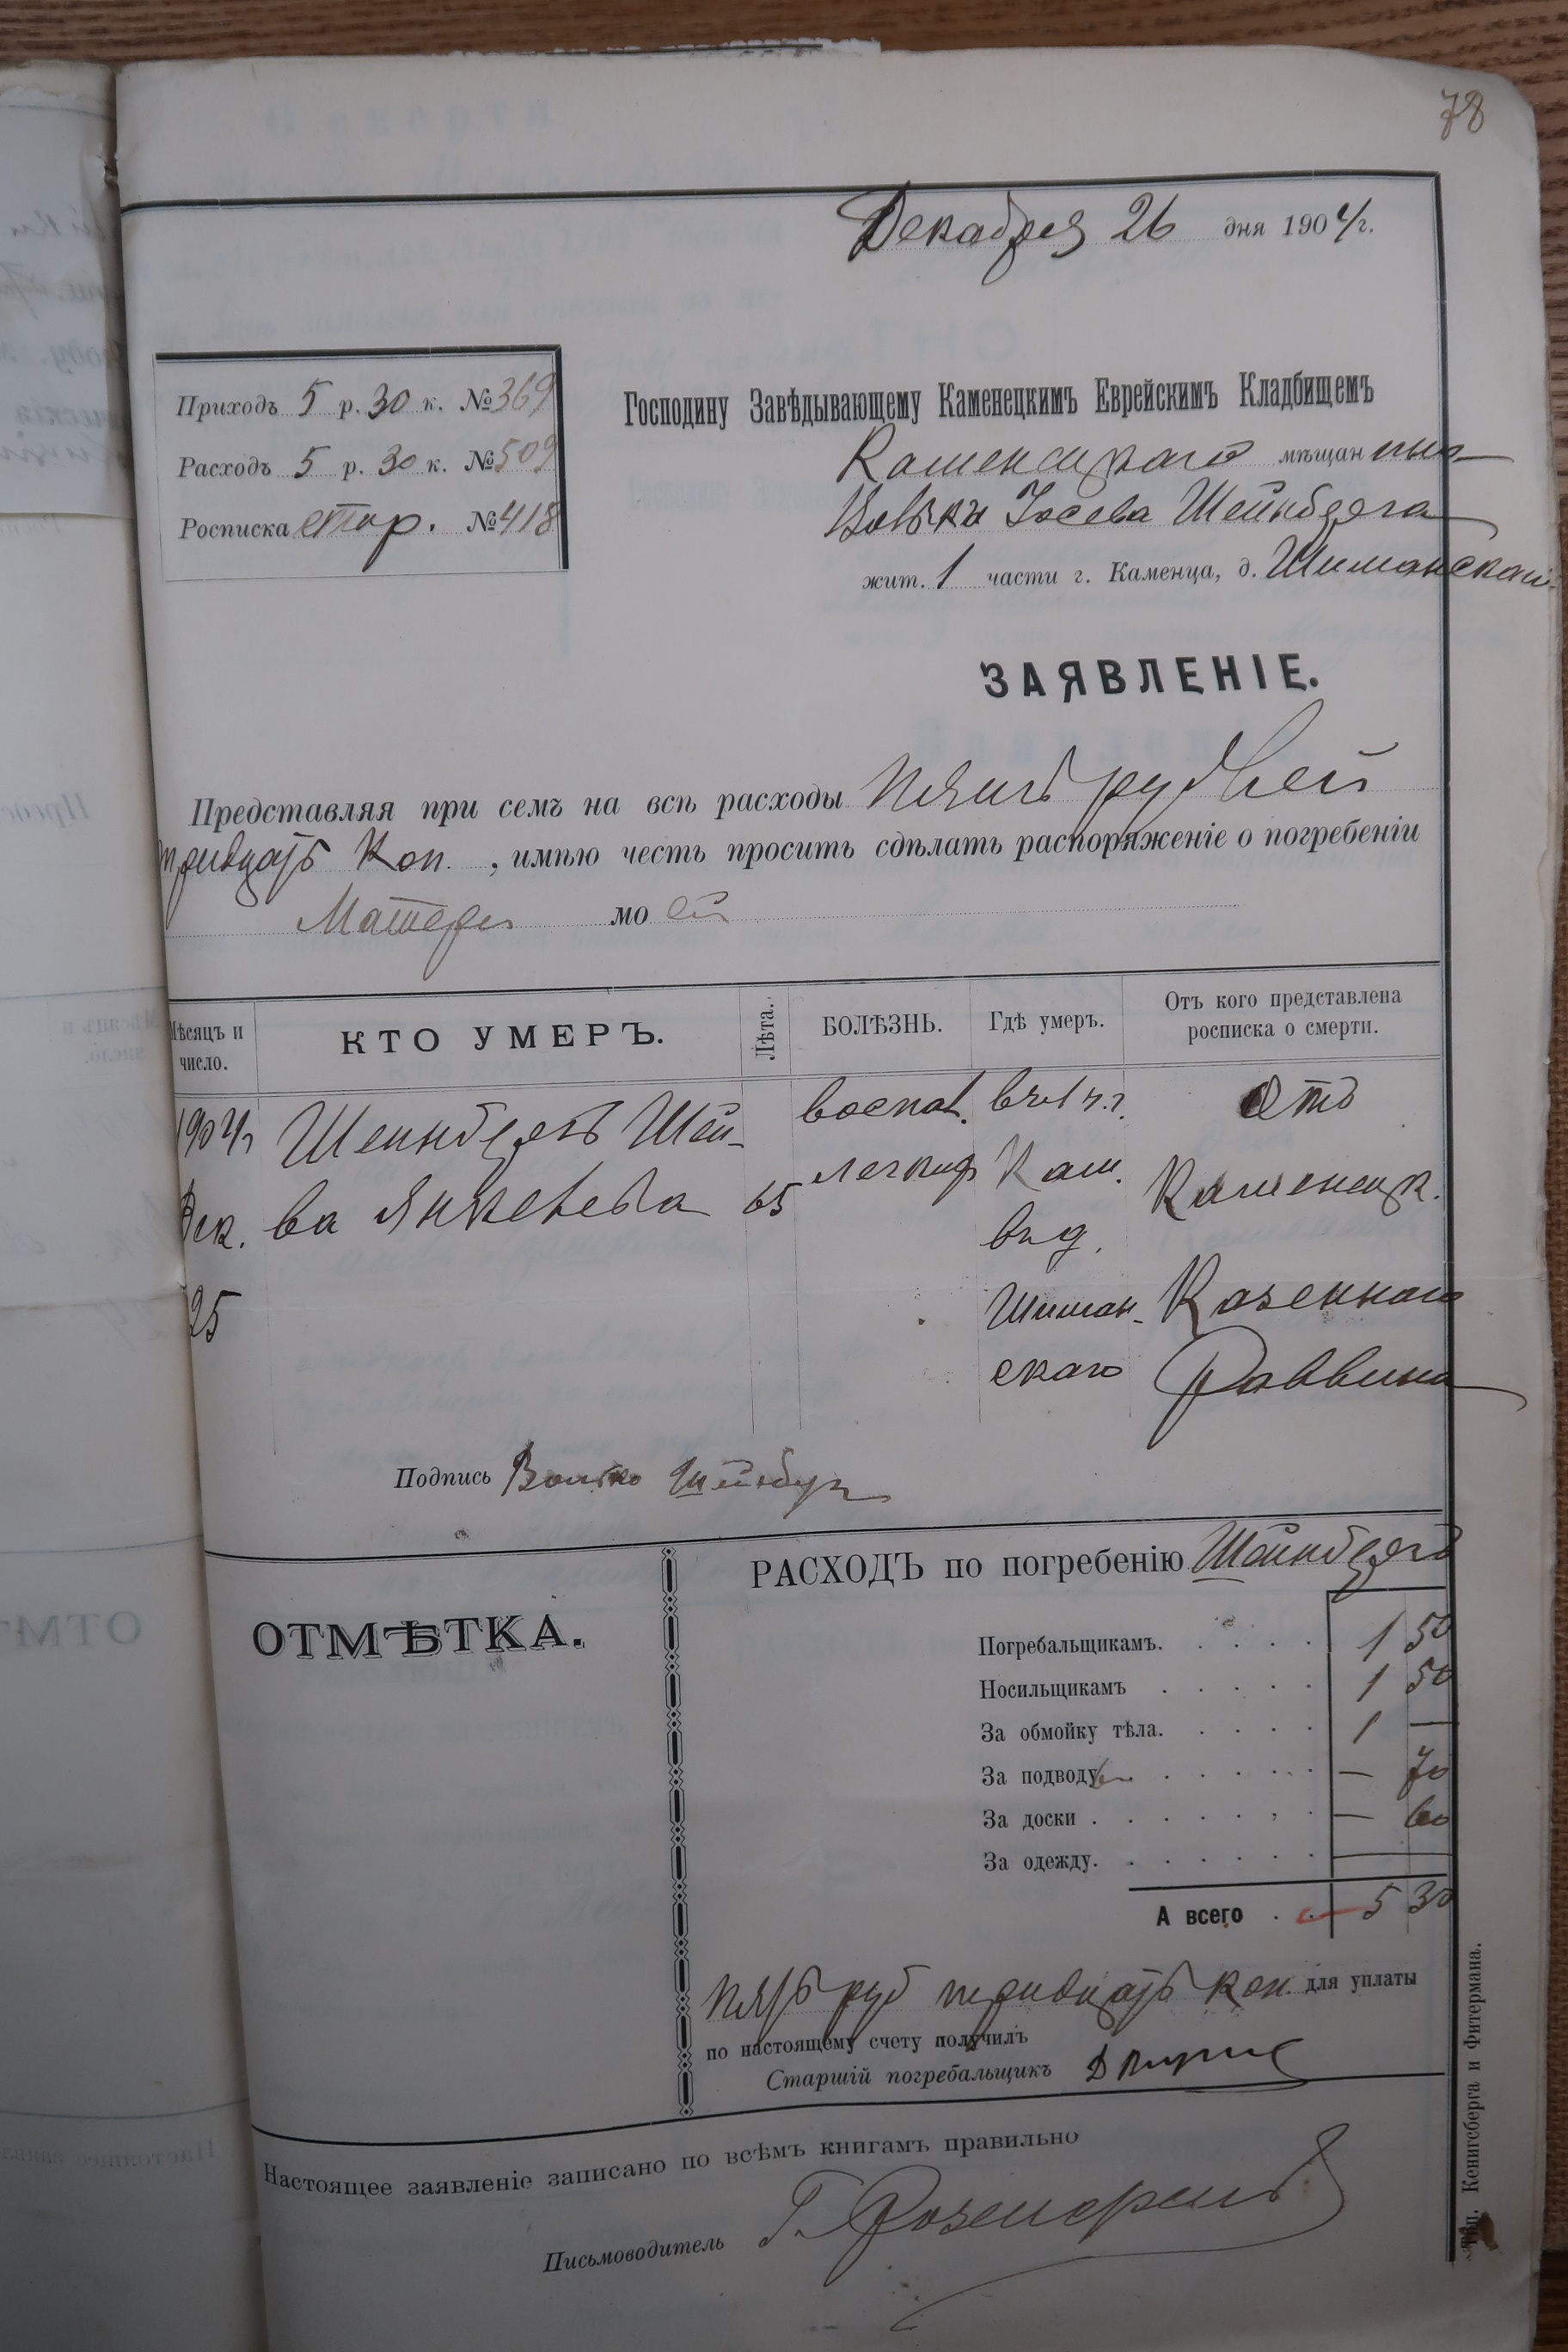 78
Декабря 26 дня 1904 г.
Приходъ 5 р. 30 к. № 369
Расходъ 5 р. 30 к. № 509
Росписка стар. № 418
Господину Завѣдывающему Каменецкимъ Еврейскимъ Кладбищемъ
Каменецкаго мѣщанина
Іосева Шейнберга
жит. 1 части г. Каменца, д. Шиманскаго
ЗАЯВЛЕНІЕ.
Представляя при семъ на всѣ расходы пять рублей
тридцать коп. , имѣю честь просить сдѣлать распоряженіе о погребеніи
Матери моей
Мѣсяцъ и число. КТО УМЕРЪ. Лѣта. БОЛѢЗНЬ. Гдѣ умеръ. Отъ кого представлена росписка о смерти.
1904 г. Шейнбергъ Шей- воспал. въ 1 ч. г. Отъ
Дек. ва Янкелева 65 легкихъ Кам. Каменецк.
въ д.
25 Шиман- Казеннаго
скаго Раввина
Подпись Волько Шейнберг
ОТМѢТКА.
РАСХОДЪ по погребенію Шейнбергъ
Погребальщикамъ. 1 50
Носильщикамъ 1 50
За обмойку тѣла. 1 —
За подводу — 70
За доски — 60
За одежду.
А всего 5 30
пять руб тридцать коп. для уплаты
по настоящему счету получилъ
Старшій погребальщикъ
Настоящее заявленіе записано по всѣмъ книгамъ правильно
Письмоводитель
Тип. Кенигсберга и Фитермана.